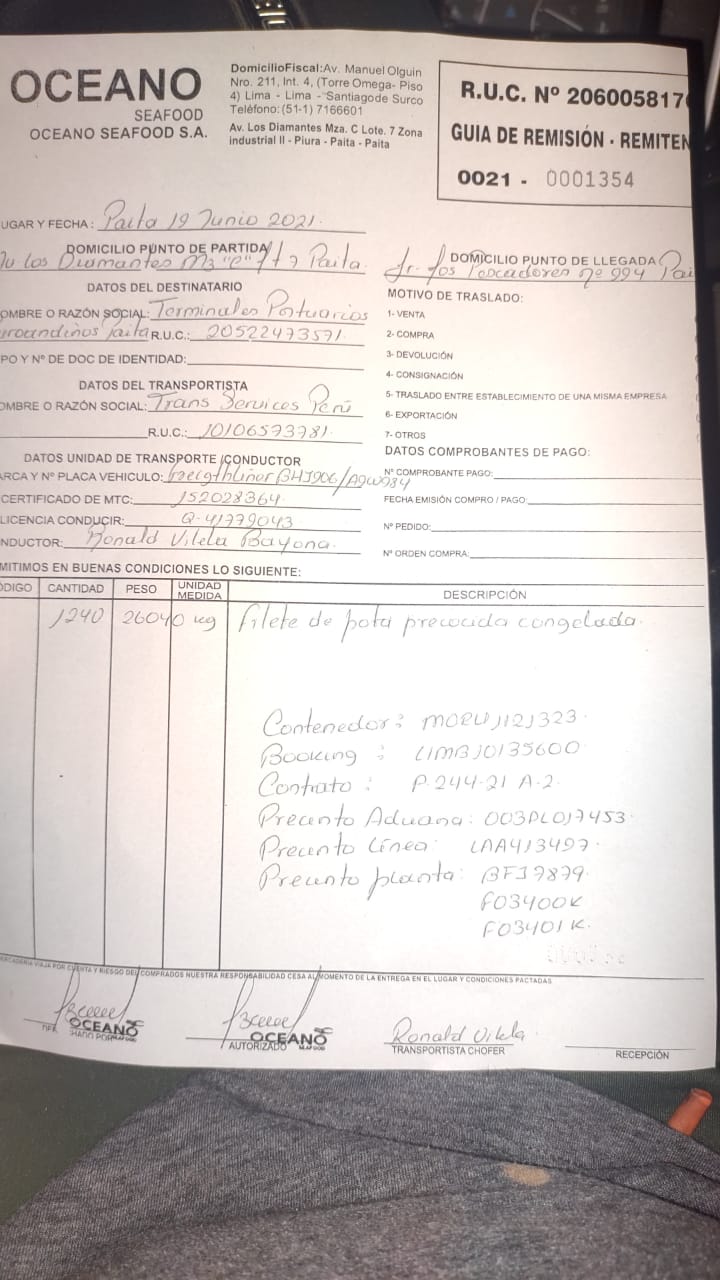 OCEANO
SEAFOOD
OCEANO SEAFOOD S.A.
DomicilioFiscal:Av. Manuel Olguin
Nro. 211, Int. 4, (Torre Omega- Piso
4) Lima - Lima - Santiagode Surco
Teléfono:(51-1) 7166601
Av. Los Diamantes Mza. C Lote. 7 Zona
industrial II - Piura - Paita - Paita
R.U.C. Nº 2060058170
GUIA DE REMISIÓN - REMITEN
0021 - 0001354
UGAR Y FECHA : Paita 19 Junio 2021.
DOMICILIO PUNTO DE PARTIDA
Av los Diamantes Mz "C" lt 7 Paita.
DOMICILIO PUNTO DE LLEGADA
Jr. Los Pescadores nº 994 Pai
DATOS DEL DESTINATARIO
OMBRE O RAZÓN SOCIAL: Terminales Portuarios
uroandinos Paita R.U.C.: 20522473571.
PO Y Nº DE DOC DE IDENTIDAD:
MOTIVO DE TRASLADO:
1- VENTA
2- COMPRA
3- DEVOLUCIÓN
4- CONSIGNACIÓN
5- TRASLADO ENTRE ESTABLECIMIENTO DE UNA MISMA EMPRESA
6- EXPORTACIÓN
7- OTROS
DATOS DEL TRANSPORTISTA
OMBRE O RAZÓN SOCIAL: Trans Services Perú
R.U.C.: 10106573781.
DATOS UNIDAD DE TRANSPORTE /CONDUCTOR
ARCA Y Nº PLACA VEHICULO: freigthliner BHJ906/A9W984
CERTIFICADO DE MTC: 152028364
LICENCIA CONDUCIR: Q-41779043
NDUCTOR: Ronald Vilela Bayona.
DATOS COMPROBANTES DE PAGO:
Nº COMPROBANTE PAGO:
FECHA EMISIÓN COMPRO / PAGO:
Nº PEDIDO:
Nº ORDEN COMPRA:
MITIMOS EN BUENAS CONDICIONES LO SIGUIENTE:
ÓDIGO CANTIDAD PESO UNIDAD MEDIDA DESCRIPCIÓN
1240 26040 kg filete de pota precocida congelada.
Contenedor: MORU1121323.
Booking : LIMBJ0135600
Contrato : P.244-21 A-2.
Precinto Aduana: 003PL017453.
Precinto Línea: LAA413497.
Precinto planta: BF19879.
F03400K
F03401K.
ERCADERIA VIAJA POR CUENTA Y RIESGO DEL COMPRADOS NUESTRA RESPONSABILIDAD CESA AL MOMENTO DE LA ENTREGA EN EL LUGAR Y CONDICIONES PACTADAS
OCEANO
OCEANO
AUTORIZADO
Ronald Vilela
TRANSPORTISTA CHOFER
RECEPCIÓN